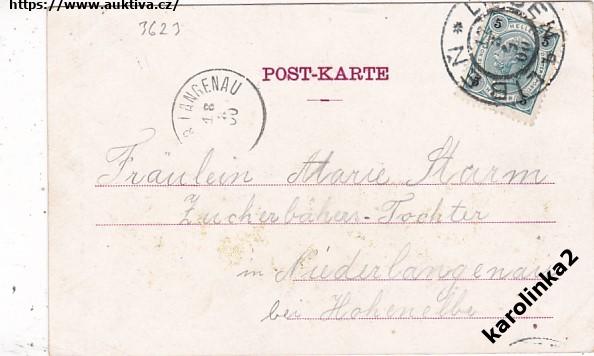 https://www.auktiva.cz/
3623
5 HELLER 5
POST-KARTE
LANGENAU
Fräulein Marie Sturm
Zuckerbäkers-Tochter
in Niederlangenau
bei Hohenelbe
karolinka2